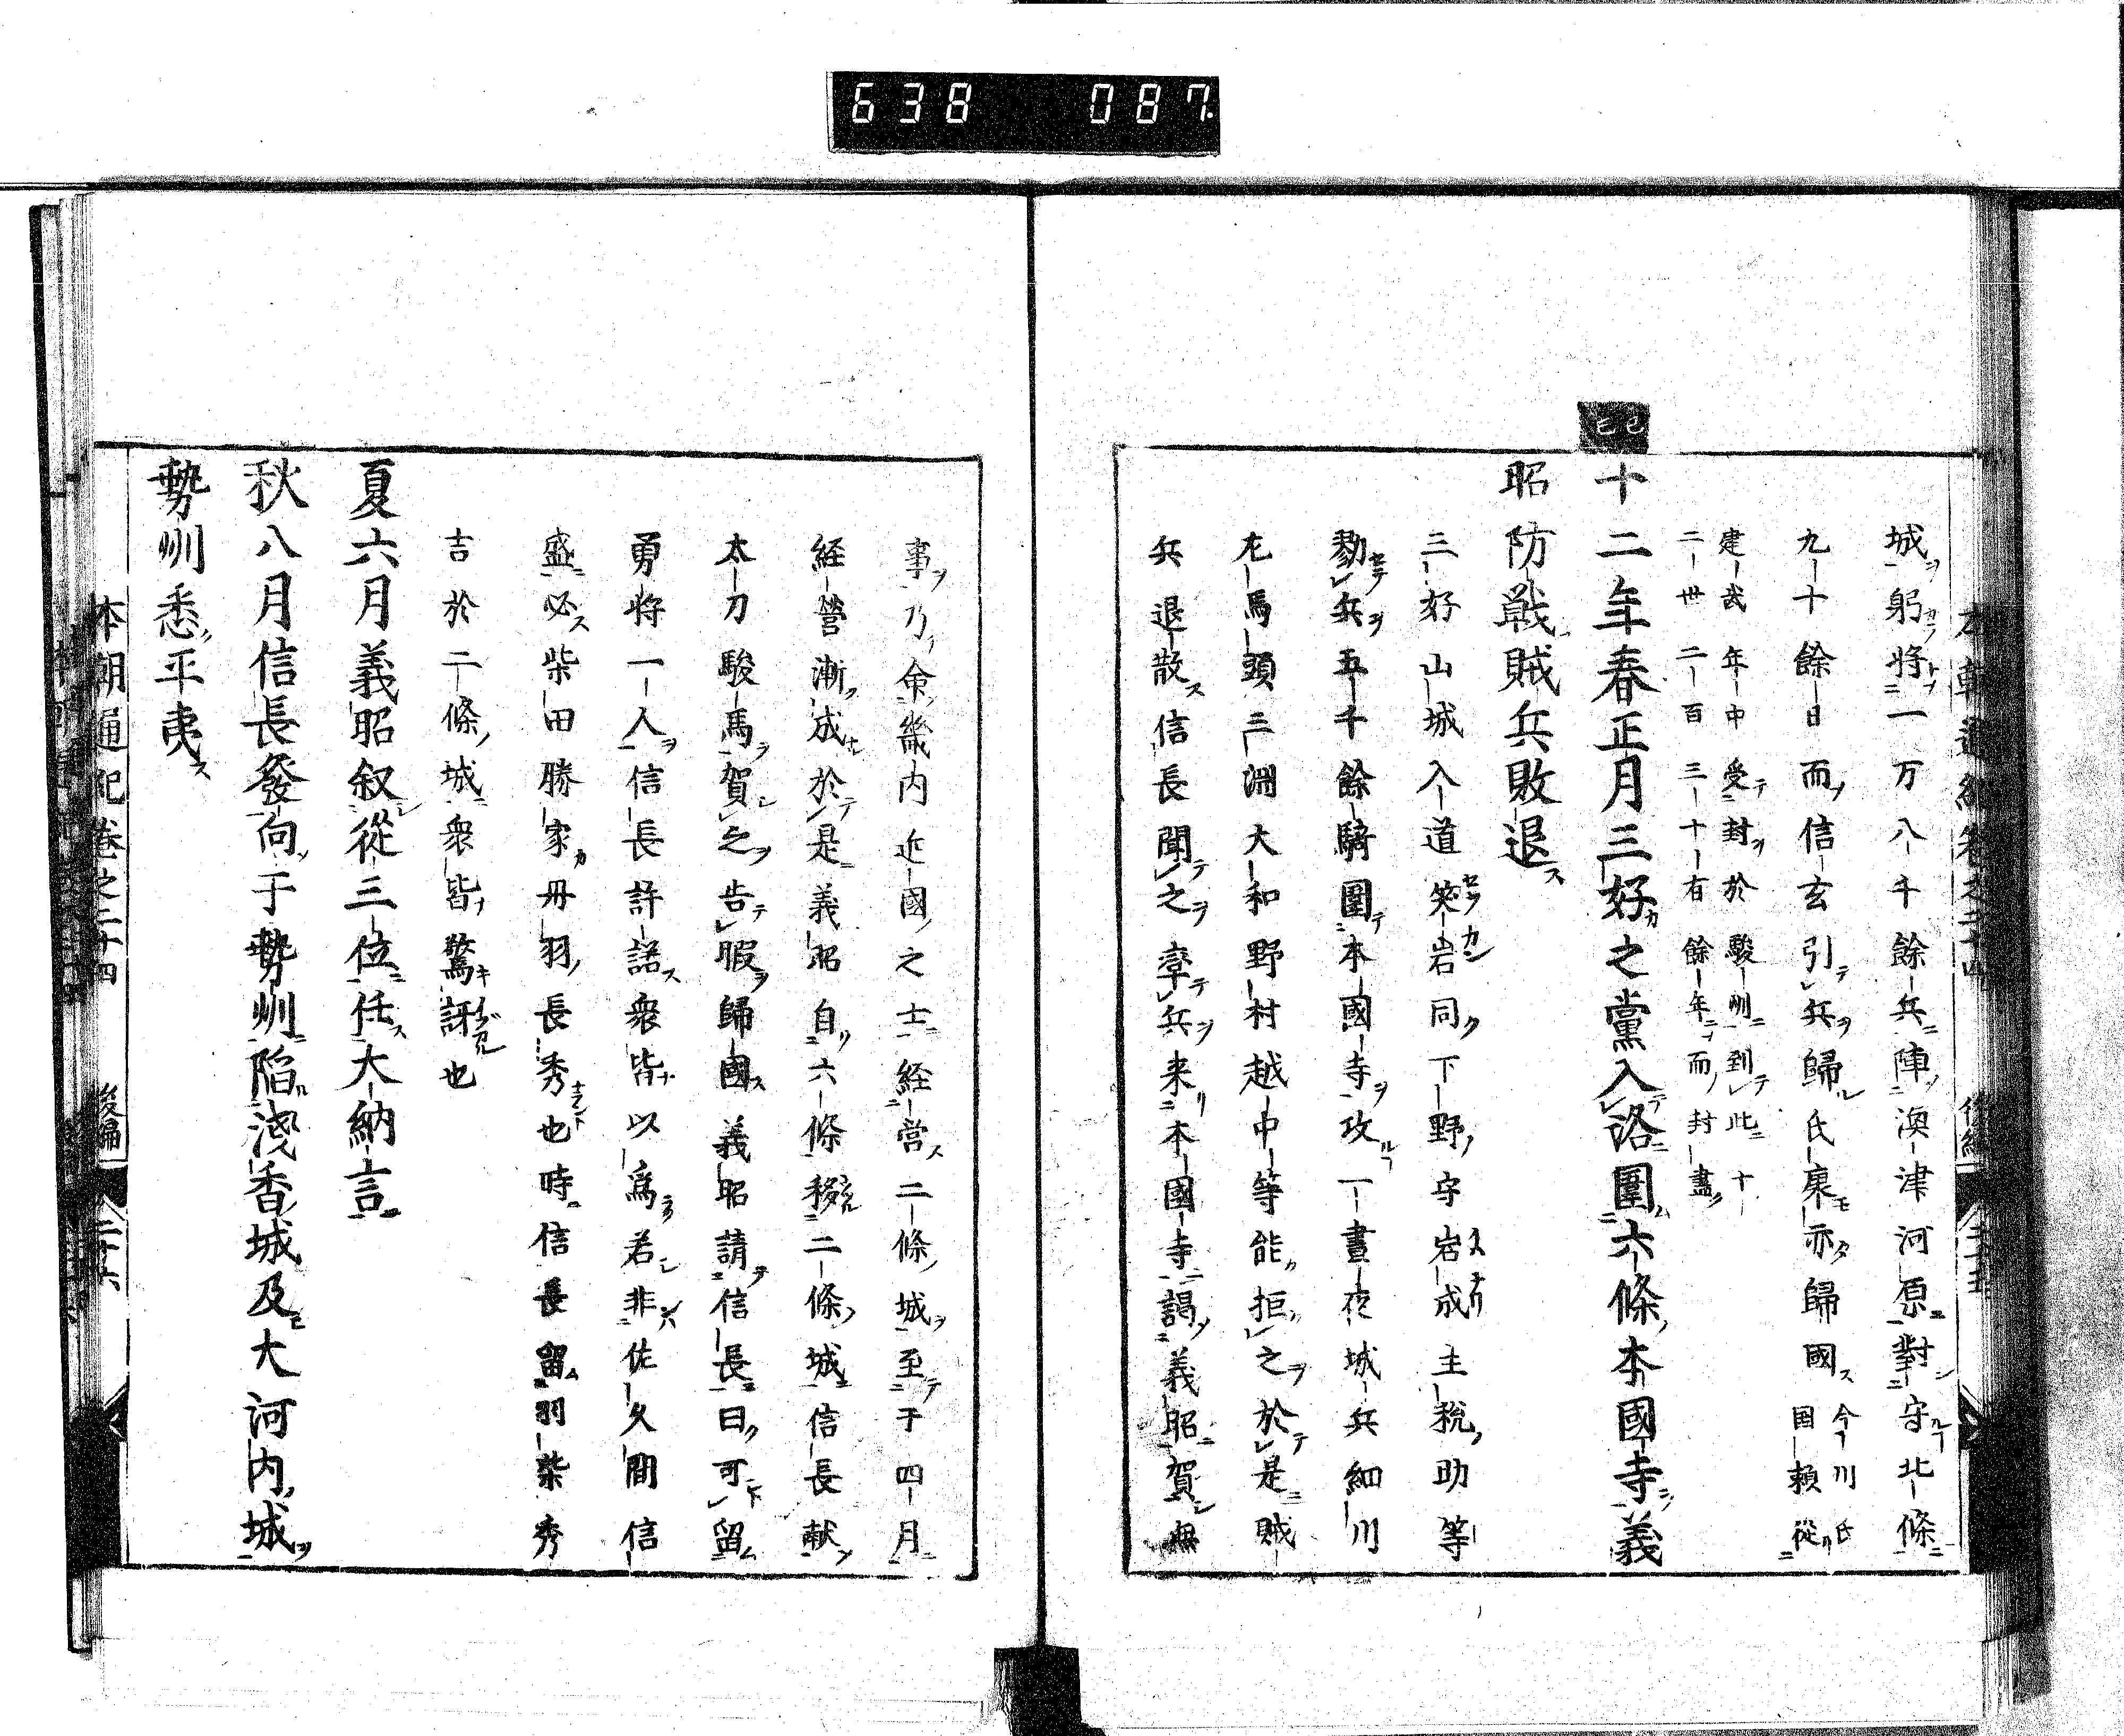 638 087
本朝通紀卷之二十四 後編 二十五
城躬將一万八千餘兵陣澳津河原對守北條
九十餘日而信玄引兵歸氏康亦歸國今川氏
国頼從
建武年中受封於駿州到此十
二世二百三十有餘年而封盡
己巳
十二年春正月三好之黨入洛圍六條本國寺義
昭防戦賊兵敗退
三好山城入道笑岩同下野守岩成主税助等
勠兵五千餘騎圍本國寺攻一晝夜城兵細川
左馬頭三淵大和野村越中等能拒之於是賊
兵退散信長聞之率兵来本國寺謁義昭賀無
事乃命畿内近國之士経営二條城至于四月
経營漸成於是義昭自六條移二條城信長献
太刀駿馬賀之告暇歸國義昭請信長曰可留
勇将一人信長許諾衆皆以為若非佐久間信
盛必柴田勝家丹羽長秀也時信長留羽柴秀
吉於二條城衆皆驚訝也
夏六月義昭叙從三位任大納言
秋八月信長發向于勢州陷淺香城及大河内城
勢州悉平夷
本朝通紀卷之二十四 後編 二十六